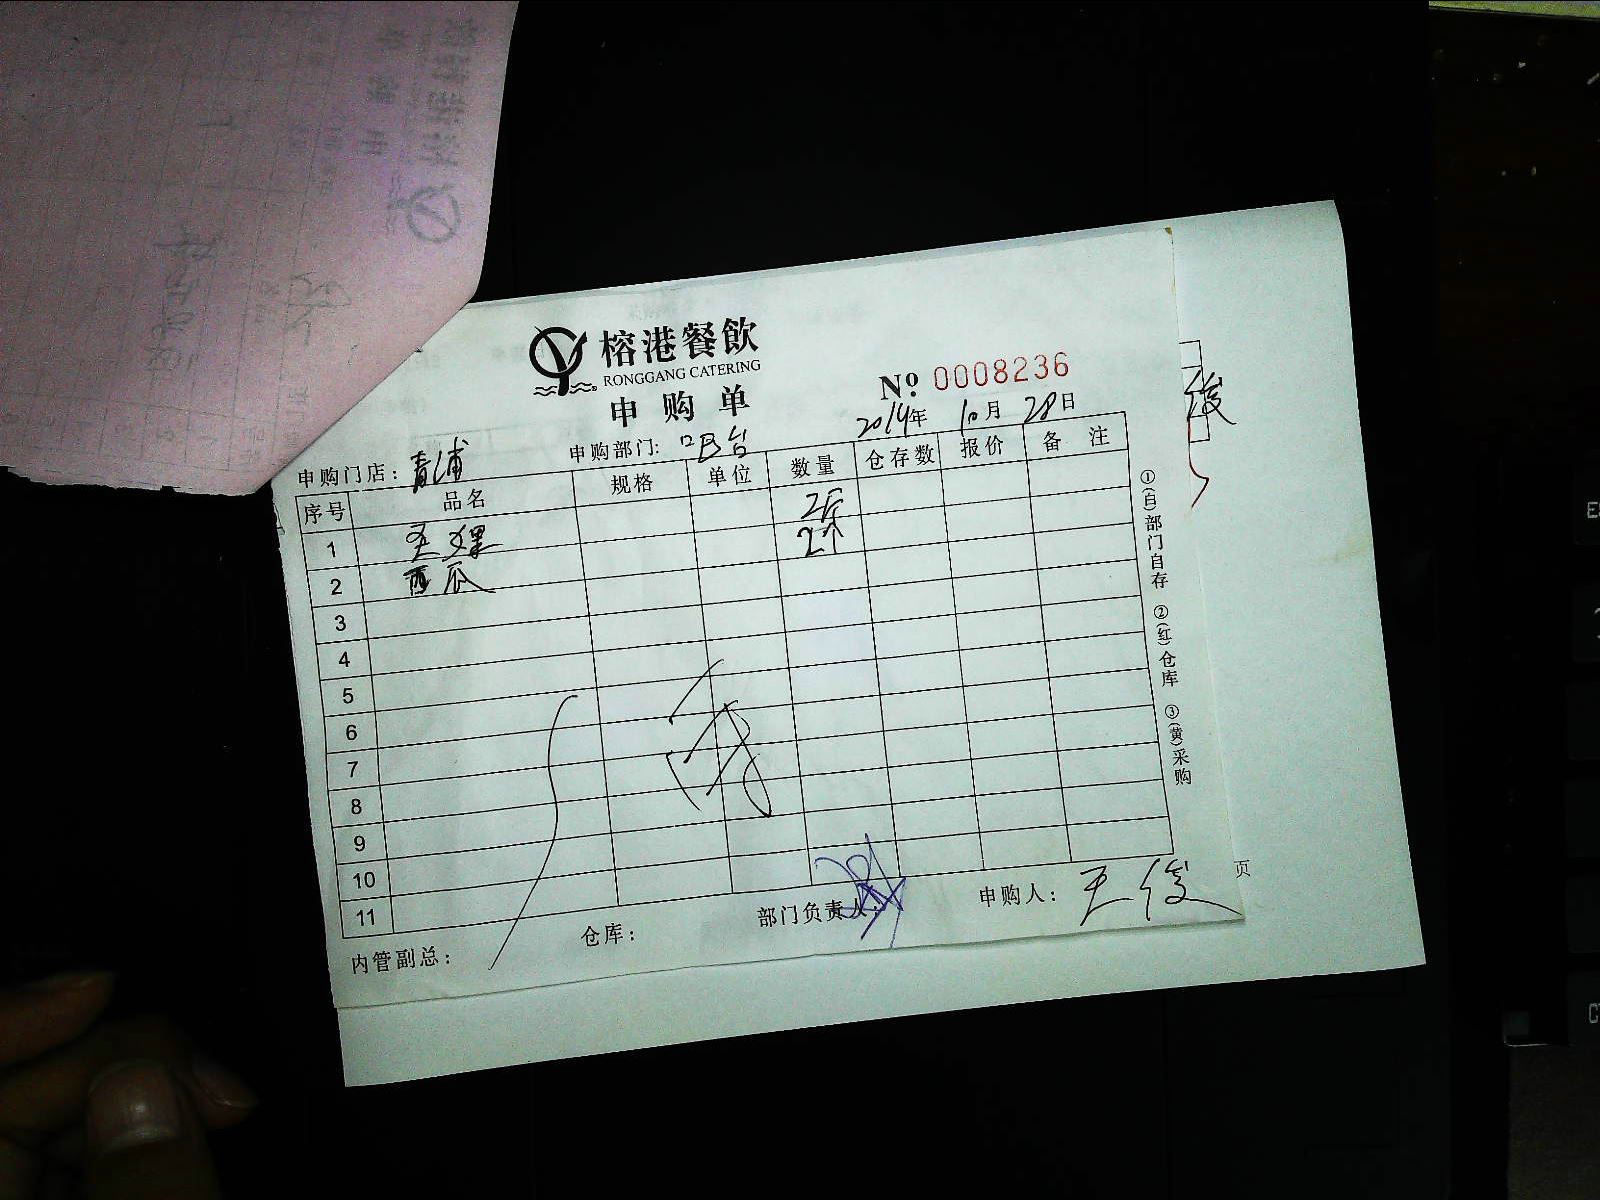 榕港餐飲
RONGGANG CATERING
申购单
№ 0008236
2014年 10月 28日
申购门店：青浦 申购部门：吧台
序号 品名 规格 单位 数量 仓存数 报价 备 注
1
2 西瓜 2个
3
4
5
6
7
8
9
10
11
内管副总： 仓库： 部门负责人： 申购人：王俊
①(白)部门自存 ②(红)仓库 ③(黄)采购
俊
页